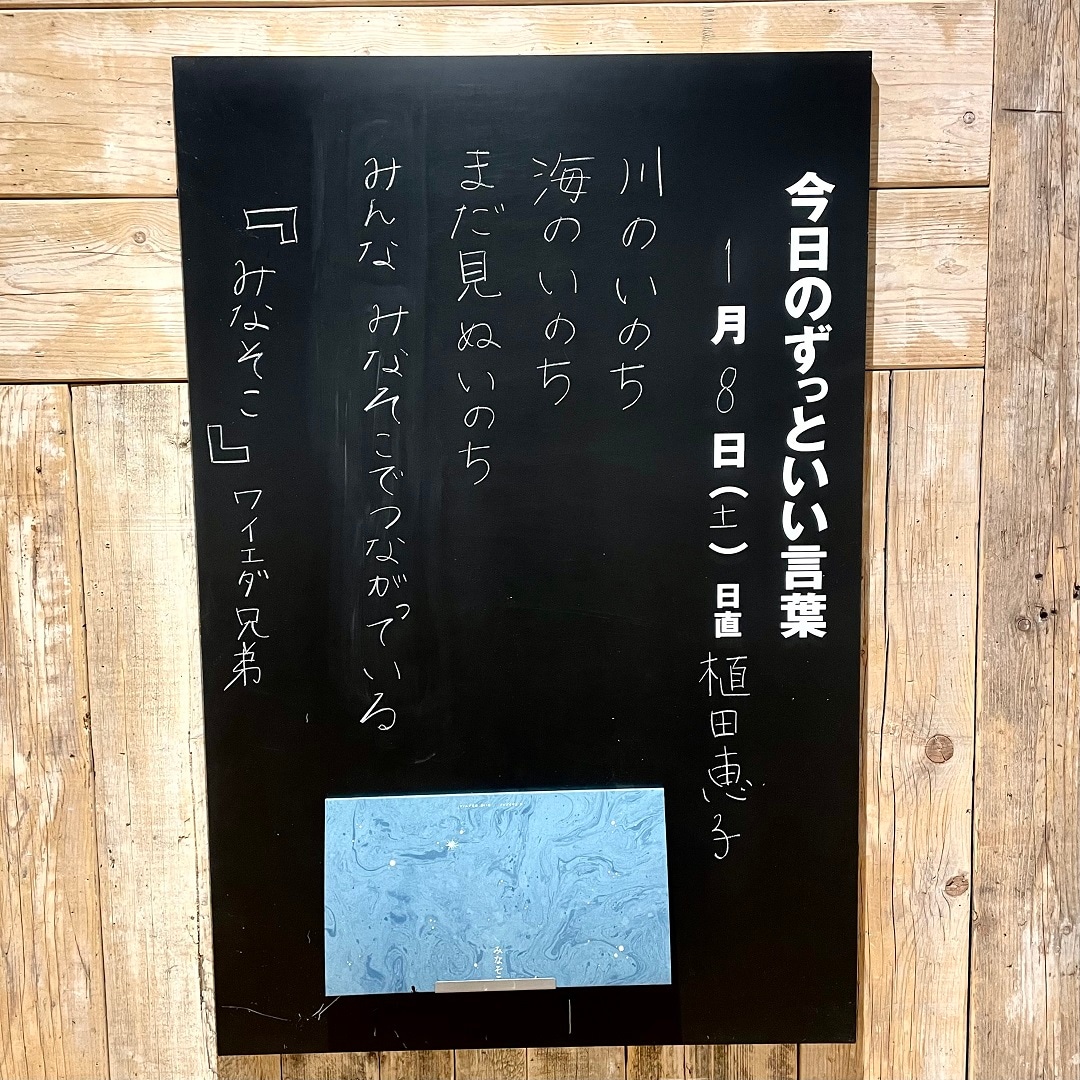 今日のずっといい言葉
1月8日(土)日直 植田恵子
川のいのち
海のいのち
まだ見ぬいのち
みんな みなそこでつながっている
『みなそこ』ワイエダ兄弟
みなそこ